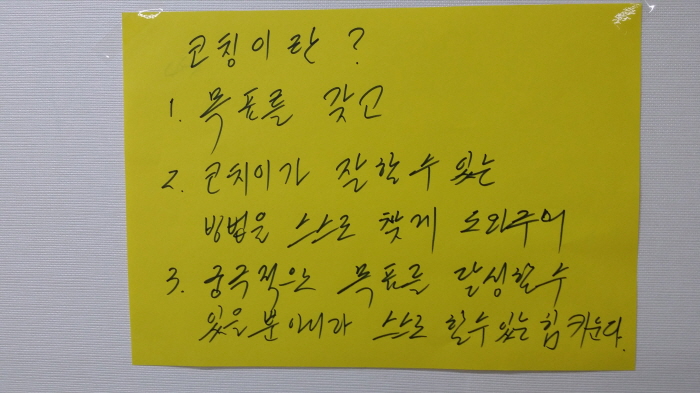 코칭이란?
1. 목표를 갖고
2. 코치이가 잘할수 있는
방법을 스스로 찾게 도와주어
3. 궁극적인 목표를 달성할수
있을뿐아니라 스스로 할수있는 힘 키운다.